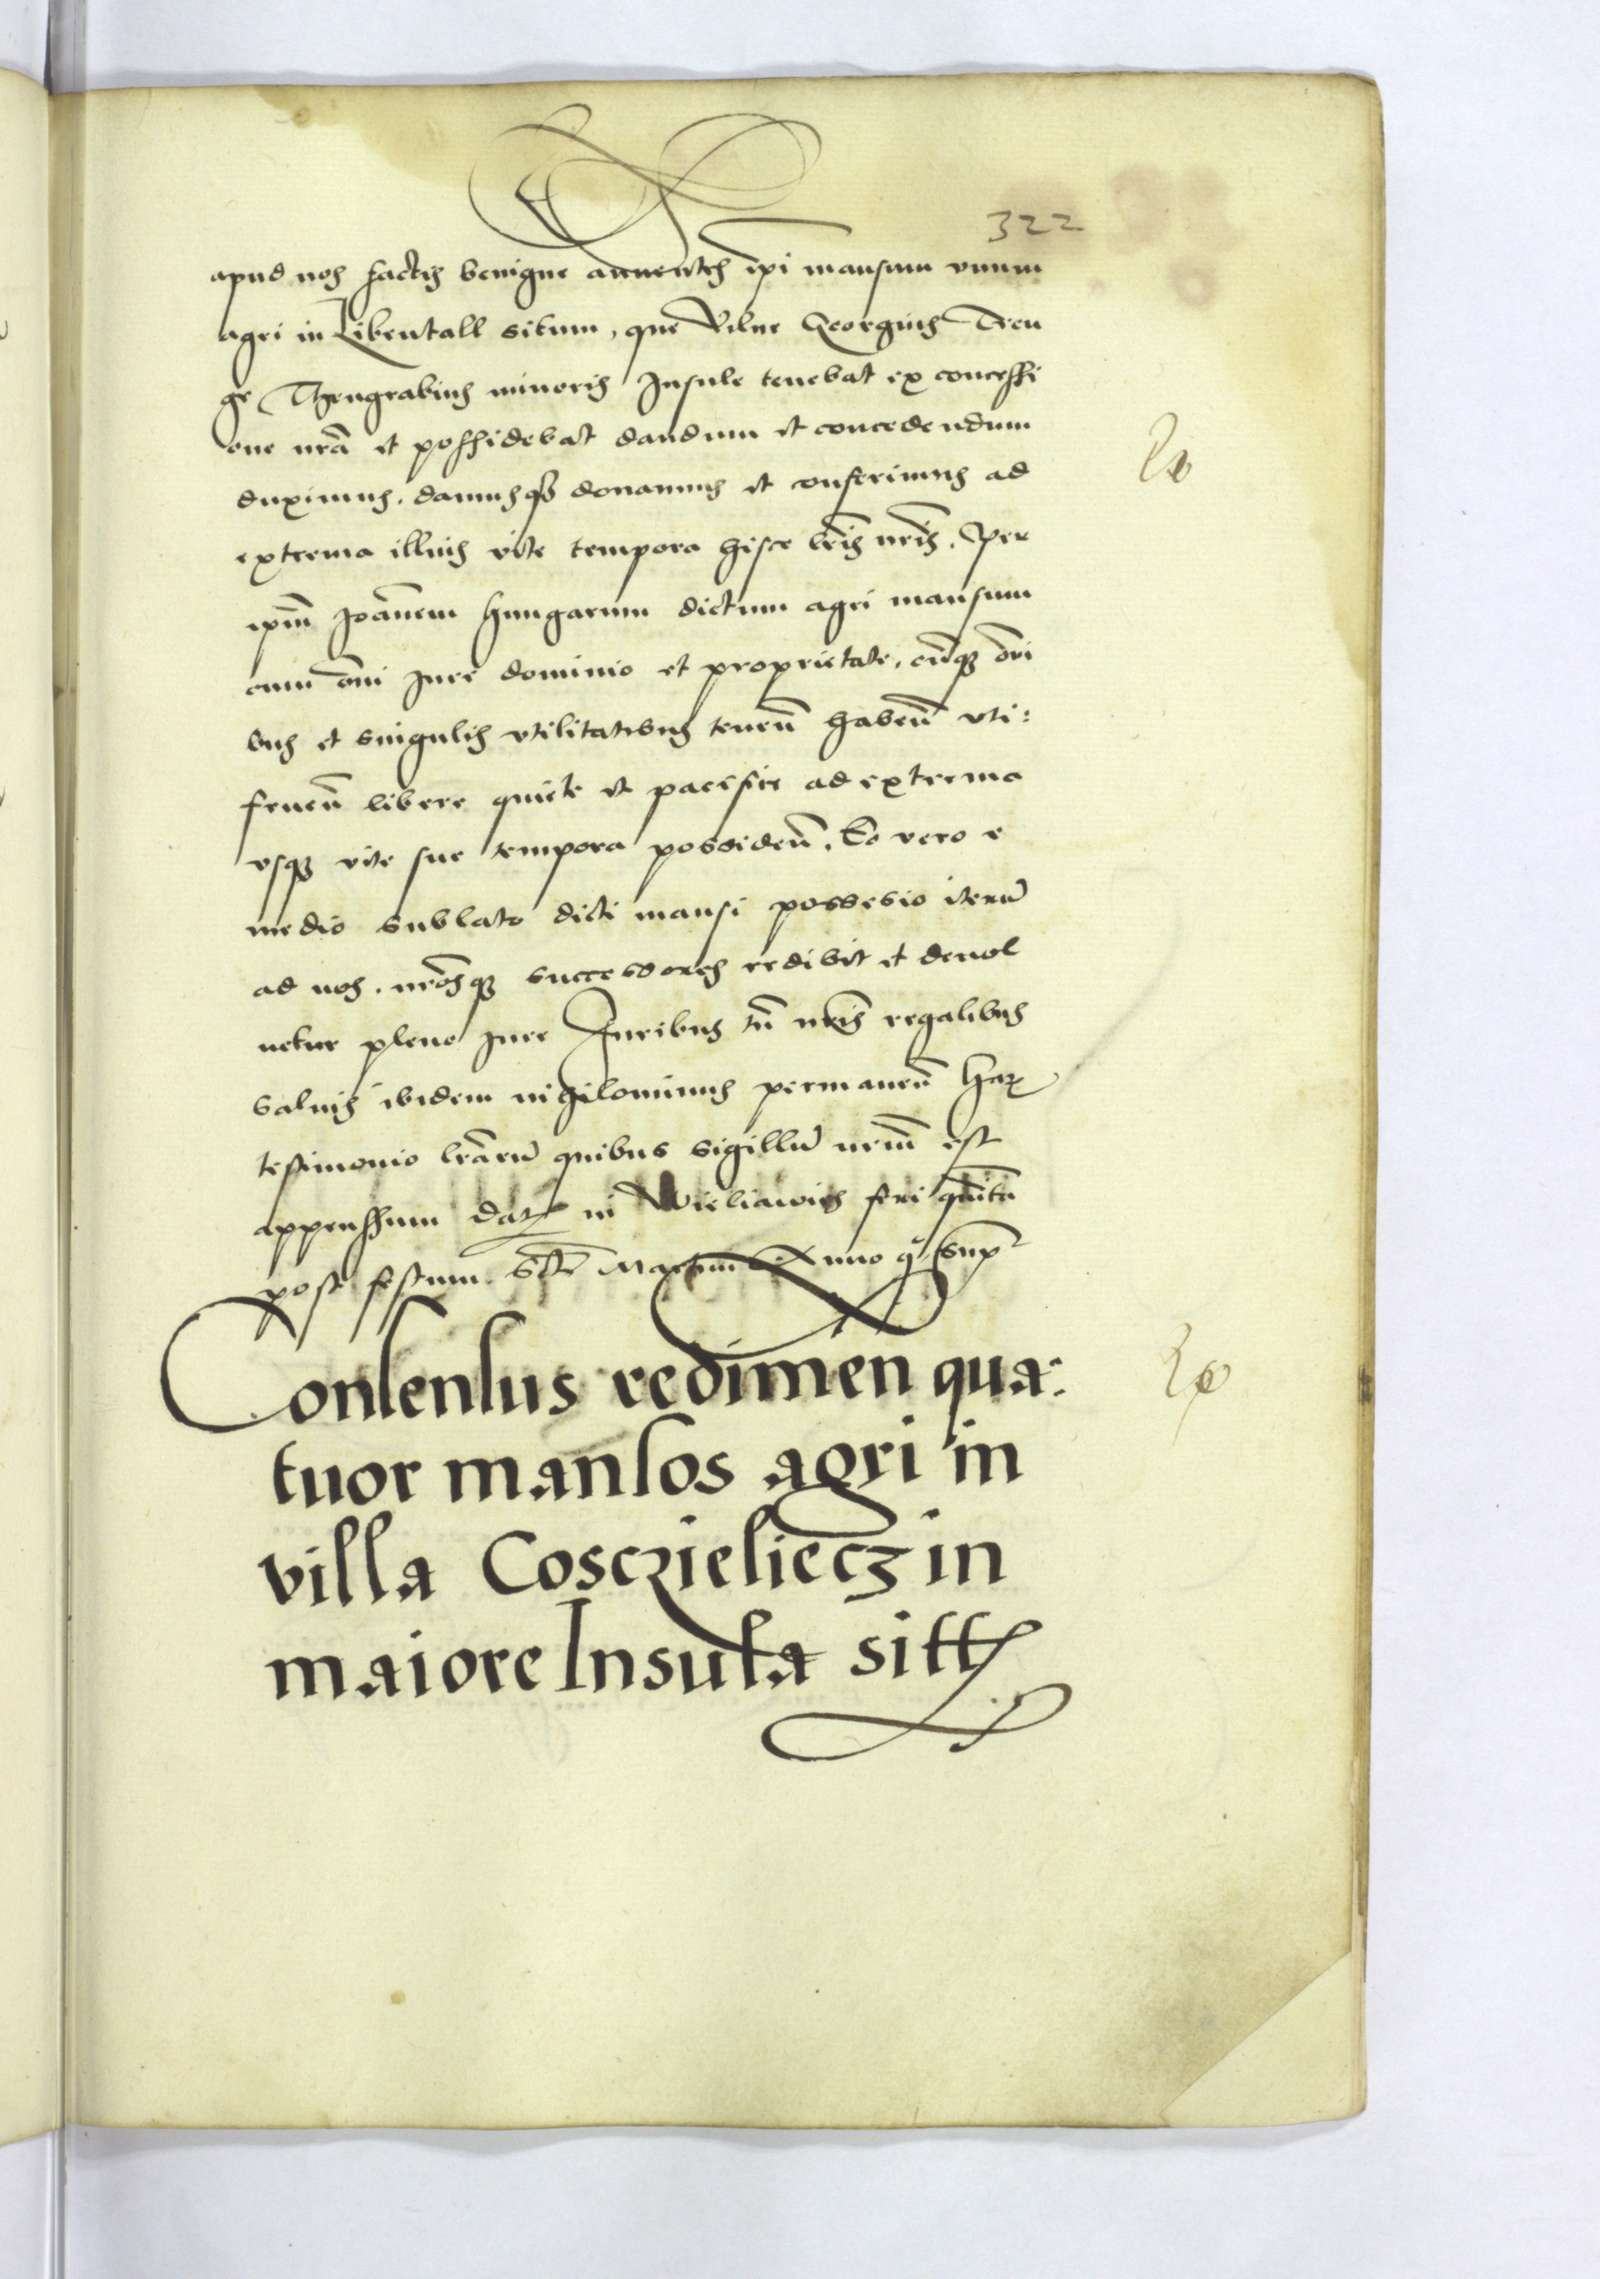 322
apud nos factis benigne annuentes ipi mansum unum
agri in Libentall situm, que Vilne Georgius Tren
ge Thengrabius minoris Insule tenebat ex concessi
one nrã et possidebat dandum et concedendum
duximus. damusqz donamus et conferimus ad
extrema illius vite tempora hisce lris nris. Per
ipm̃ Joãnem Hungarum dictum agri mansum
cum om̃i Jure dominio et proprietate, cũqz om̃i
bus et singulis vtilitatibus teneñ habeñ vti:
frueñ libere quiete et pacifice ad extrema
vsqz vite sue tempora possideñ. Eo vero e
medio sublato dicti mansi possesio iterũ
ad nos. nrõsqz successores redibit et deuol
uetur pleno Jure Juribus tñ nris regalibus
saluis ibidem nihilominus permaneñ Harz
testimonio lrãrũ quibus sigillũ nrm̃ est
appensum datz in Wieliawies feri quĩta
post festum Scti Martini Anno q supͣ
Consensus redimen qua:
tuor mansos agri in
villa Cosczieliecz in
maiore Insula sitt